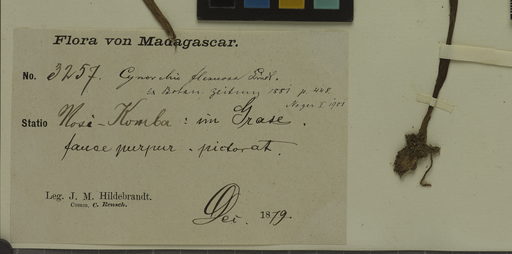 Flora von Madagascar.
No. 3257. Cynorchis flexuosa Lindl.
ex Botan. Zeitung 1881 p. 448
Statio Nosi-Komba: im Grase.
fauce purpur. pictorat.
Leg. J. M. Hildebrandt.
Comm. C. Rensch.
Dec. 1879.